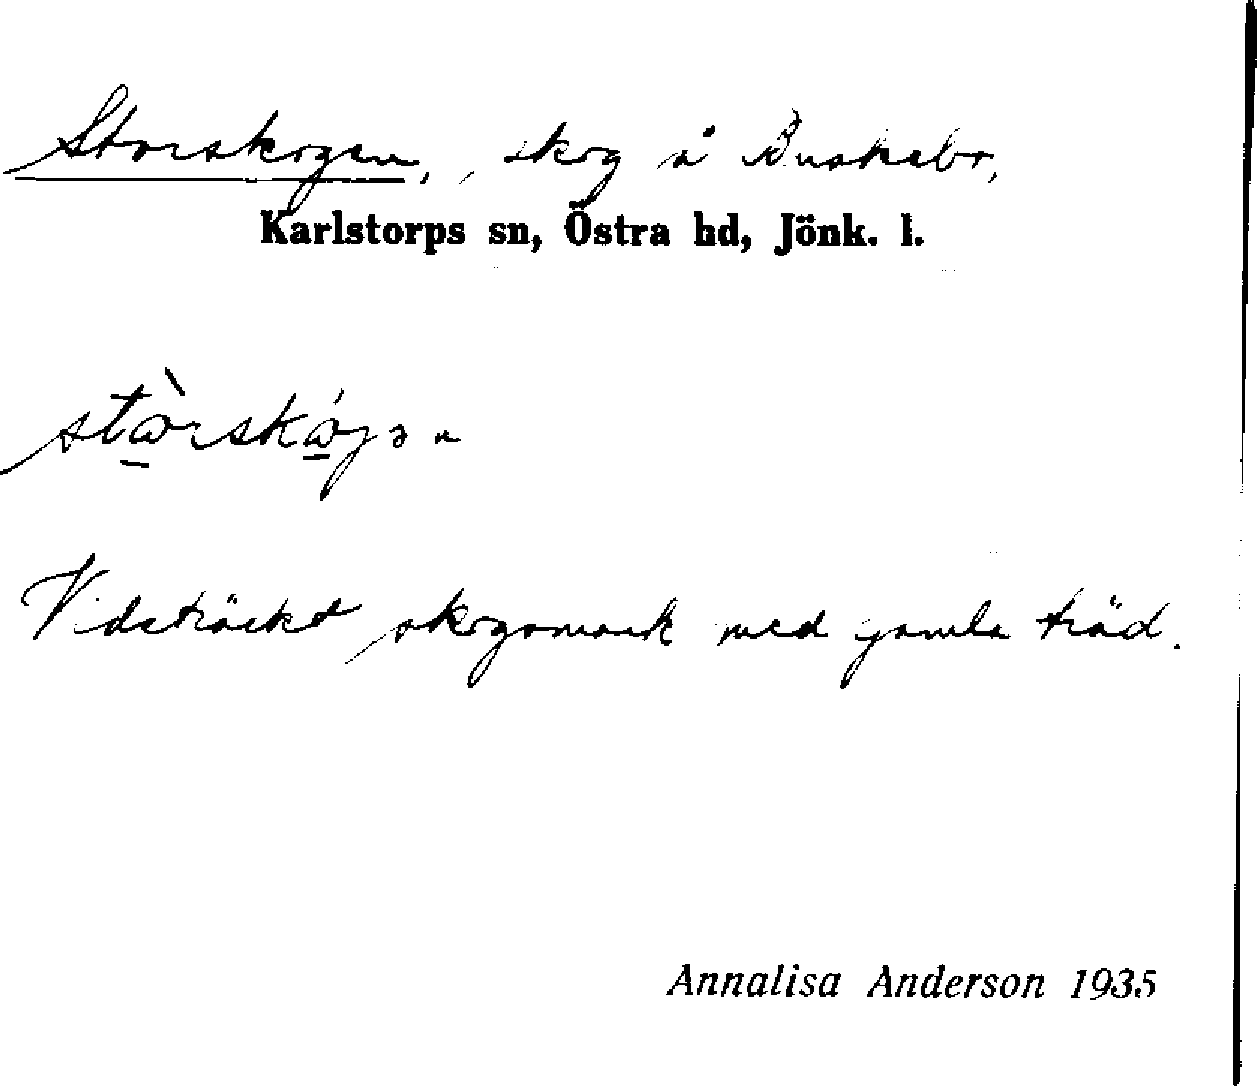 Storskogen, skog å Buskebo,
Karlstorps sn, Östra hd, Jönk. l.
Vidsträckt skogsmark med gamla träd.
Annalisa Anderson 1935